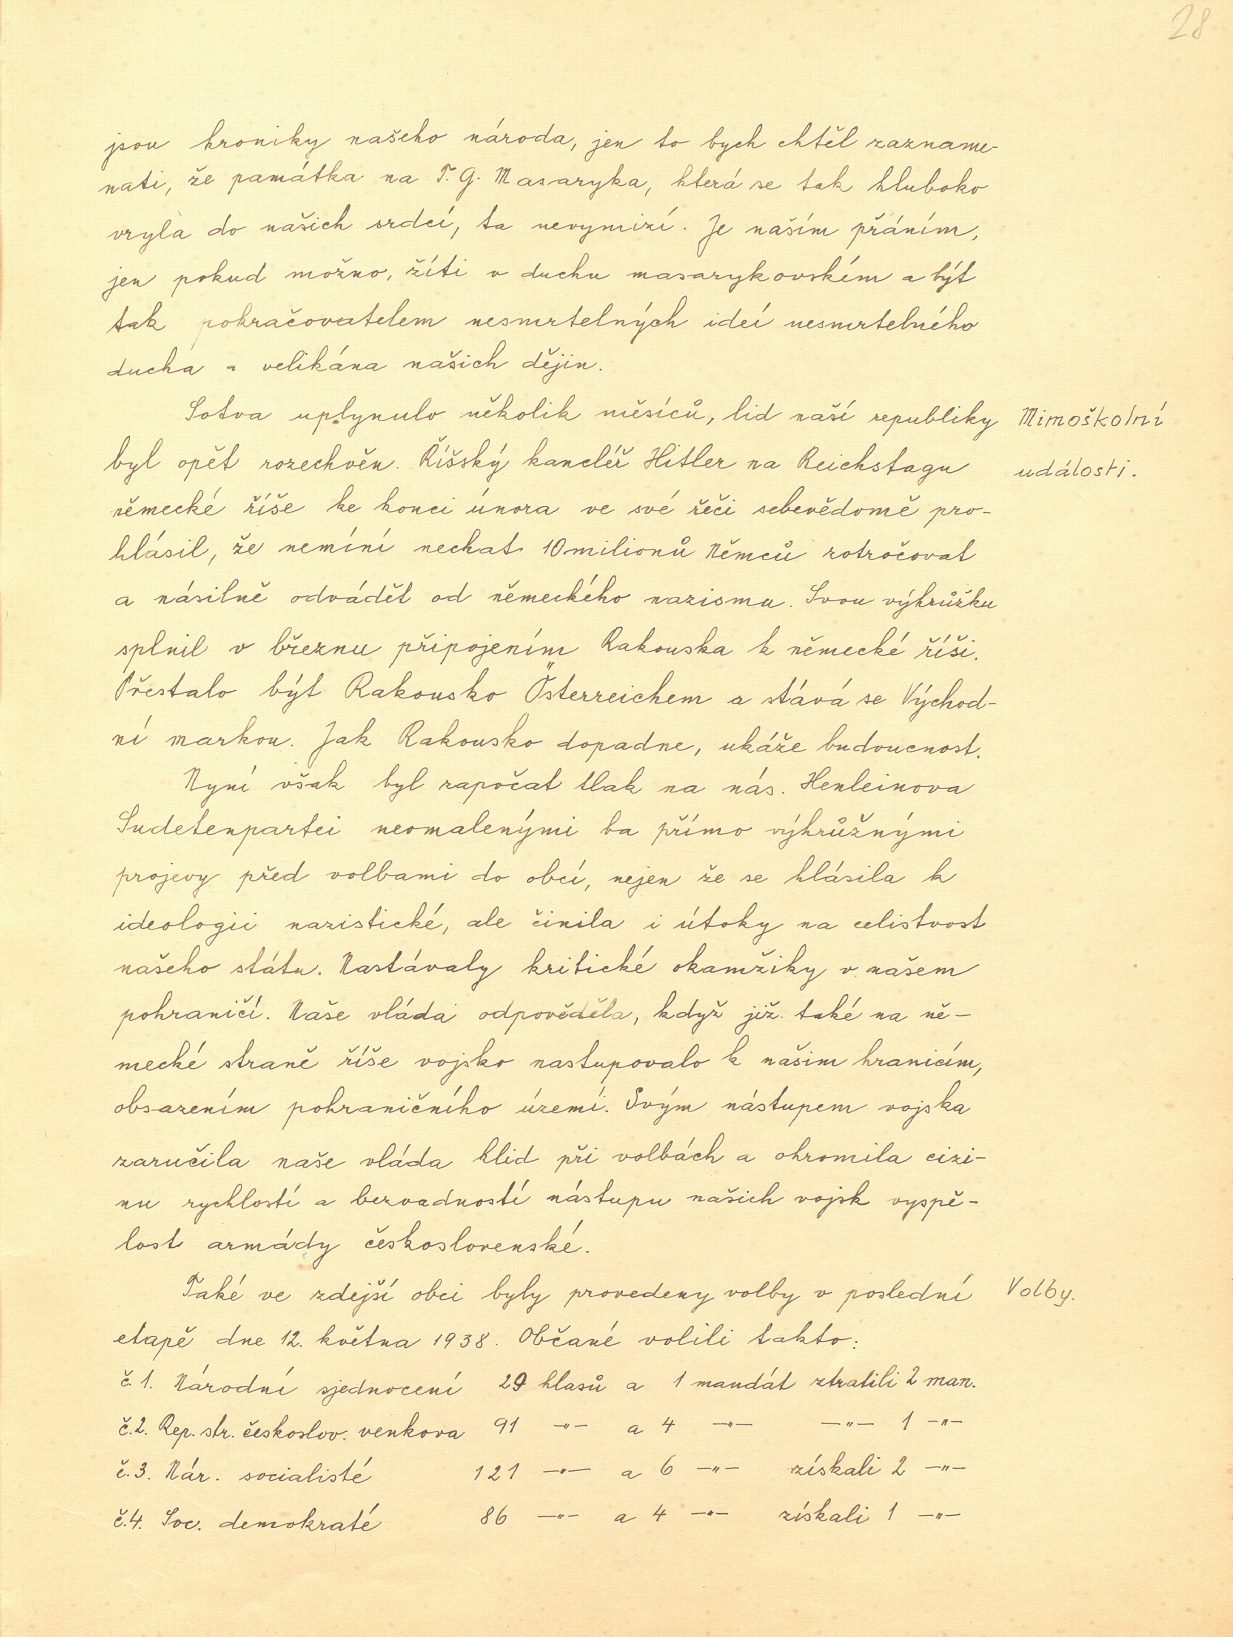 28
jsou kroniky našeho národa, jen to bych chtěl zazname-
nati, že památka na T. G. Masaryka, která se tak hluboko
vryla do našich srdcí, ta nevymizí. Je naším přáním,
jen pokud možno, žíti v duchu masarykovském a být
tak pokračovatelem nesmrtelných ideí nesmrtelného
ducha a velikána našich dějin.
Sotva uplynulo několik měsíců, lid naší republiky
Mimoškolní
byl opět rozechvěn. Říšský kancléř Hitler na Reichstagu
události.
německé říše ke konci února ve své řeči sebevědomě pro-
hlásil, že nemíní nechat 10 milionů Němců zotročovat
a násilně odvádět od německého nazismu. Svou výhrůžku
splnil v březnu připojením Rakouska k německé říši.
Přestalo být Rakousko Österreichem a stává se Východ-
ní markou. Jak Rakousko dopadne, ukáže budoucnost.
Nyní však byl započat tlak na nás. Henleinova
Sudetenpartei neomalenými ba přímo výhrůžnými
projevy před volbami do obcí, nejen že se hlásila k
ideologii nazistické, ale činila i útoky na celistvost
našeho státu. Nastávaly kritické okamžiky v našem
pohraničí. Naše vláda odpověděla, když již také na ně-
mecké straně říše vojsko nastupovalo k našim hranicím,
obsazením pohraničního území. Svým nástupem vojska
zaručila naše vláda klid při volbách a ohromila cizi-
nu rychlostí a bezvadností nástupu našich vojsk vyspě-
lost armády československé.
Také ve zdejší obci byly provedeny volby v poslední
Volby.
etapě dne 12. května 1938. Občané volili takto:
č. 1. Národní sjednocení 29 hlasů a 1 mandát ztratili 2 man.
č. 2. Rep. str. českoslov. venkova 91 —"— a 4 —"— —"— 1 —"—
č. 3. Nár. socialisté 121 —"— a 6 —"— získali 2 —"—
č. 4. Soc. demokraté 86 —"— a 4 —"— získali 1 —"—